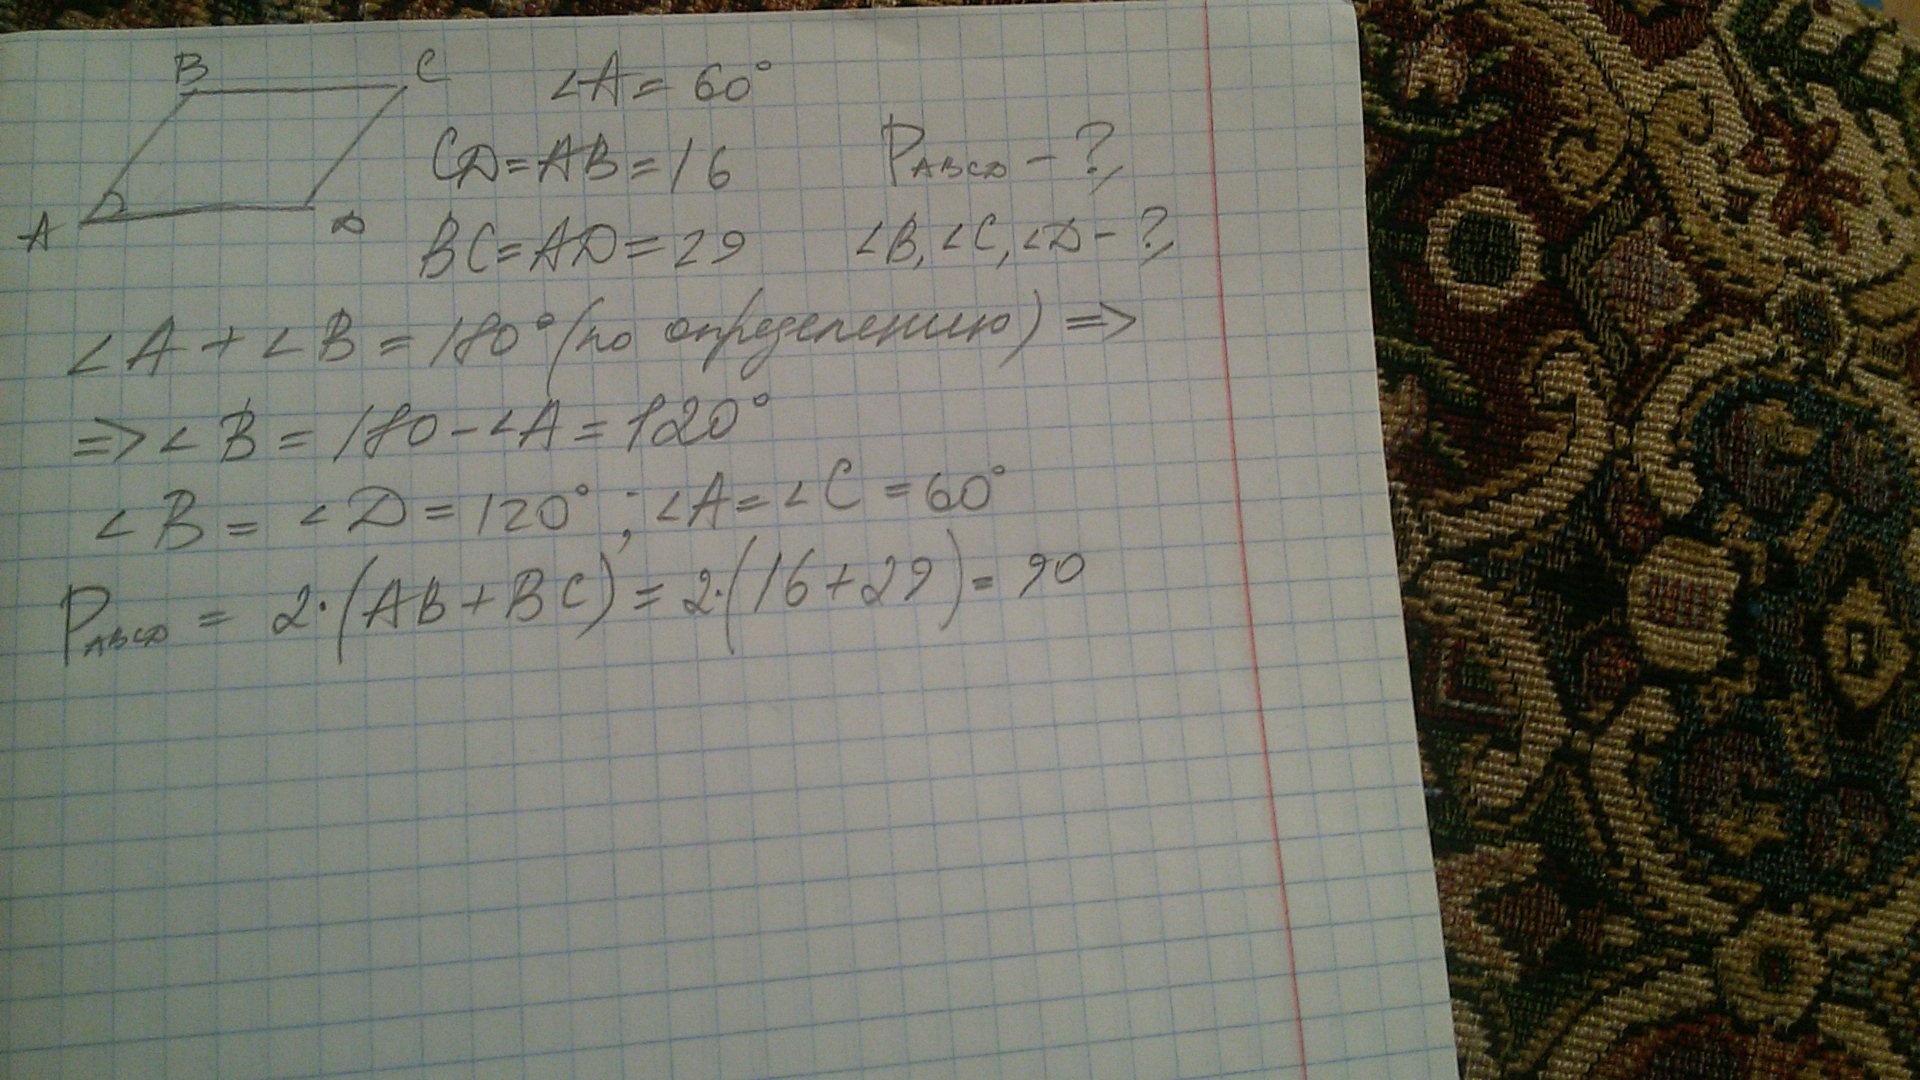 B C ∠A = 60°
CD = AB = 16 P_ABCD - ?
A D BC = AD = 29 ∠B, ∠C, ∠D - ?
∠A + ∠B = 180° (по определению) =>
=> ∠B = 180 - ∠A = 120°
∠B = ∠D = 120° ; ∠A = ∠C = 60°
P_ABCD = 2·(AB + BC) = 2·(16 + 29) = 90